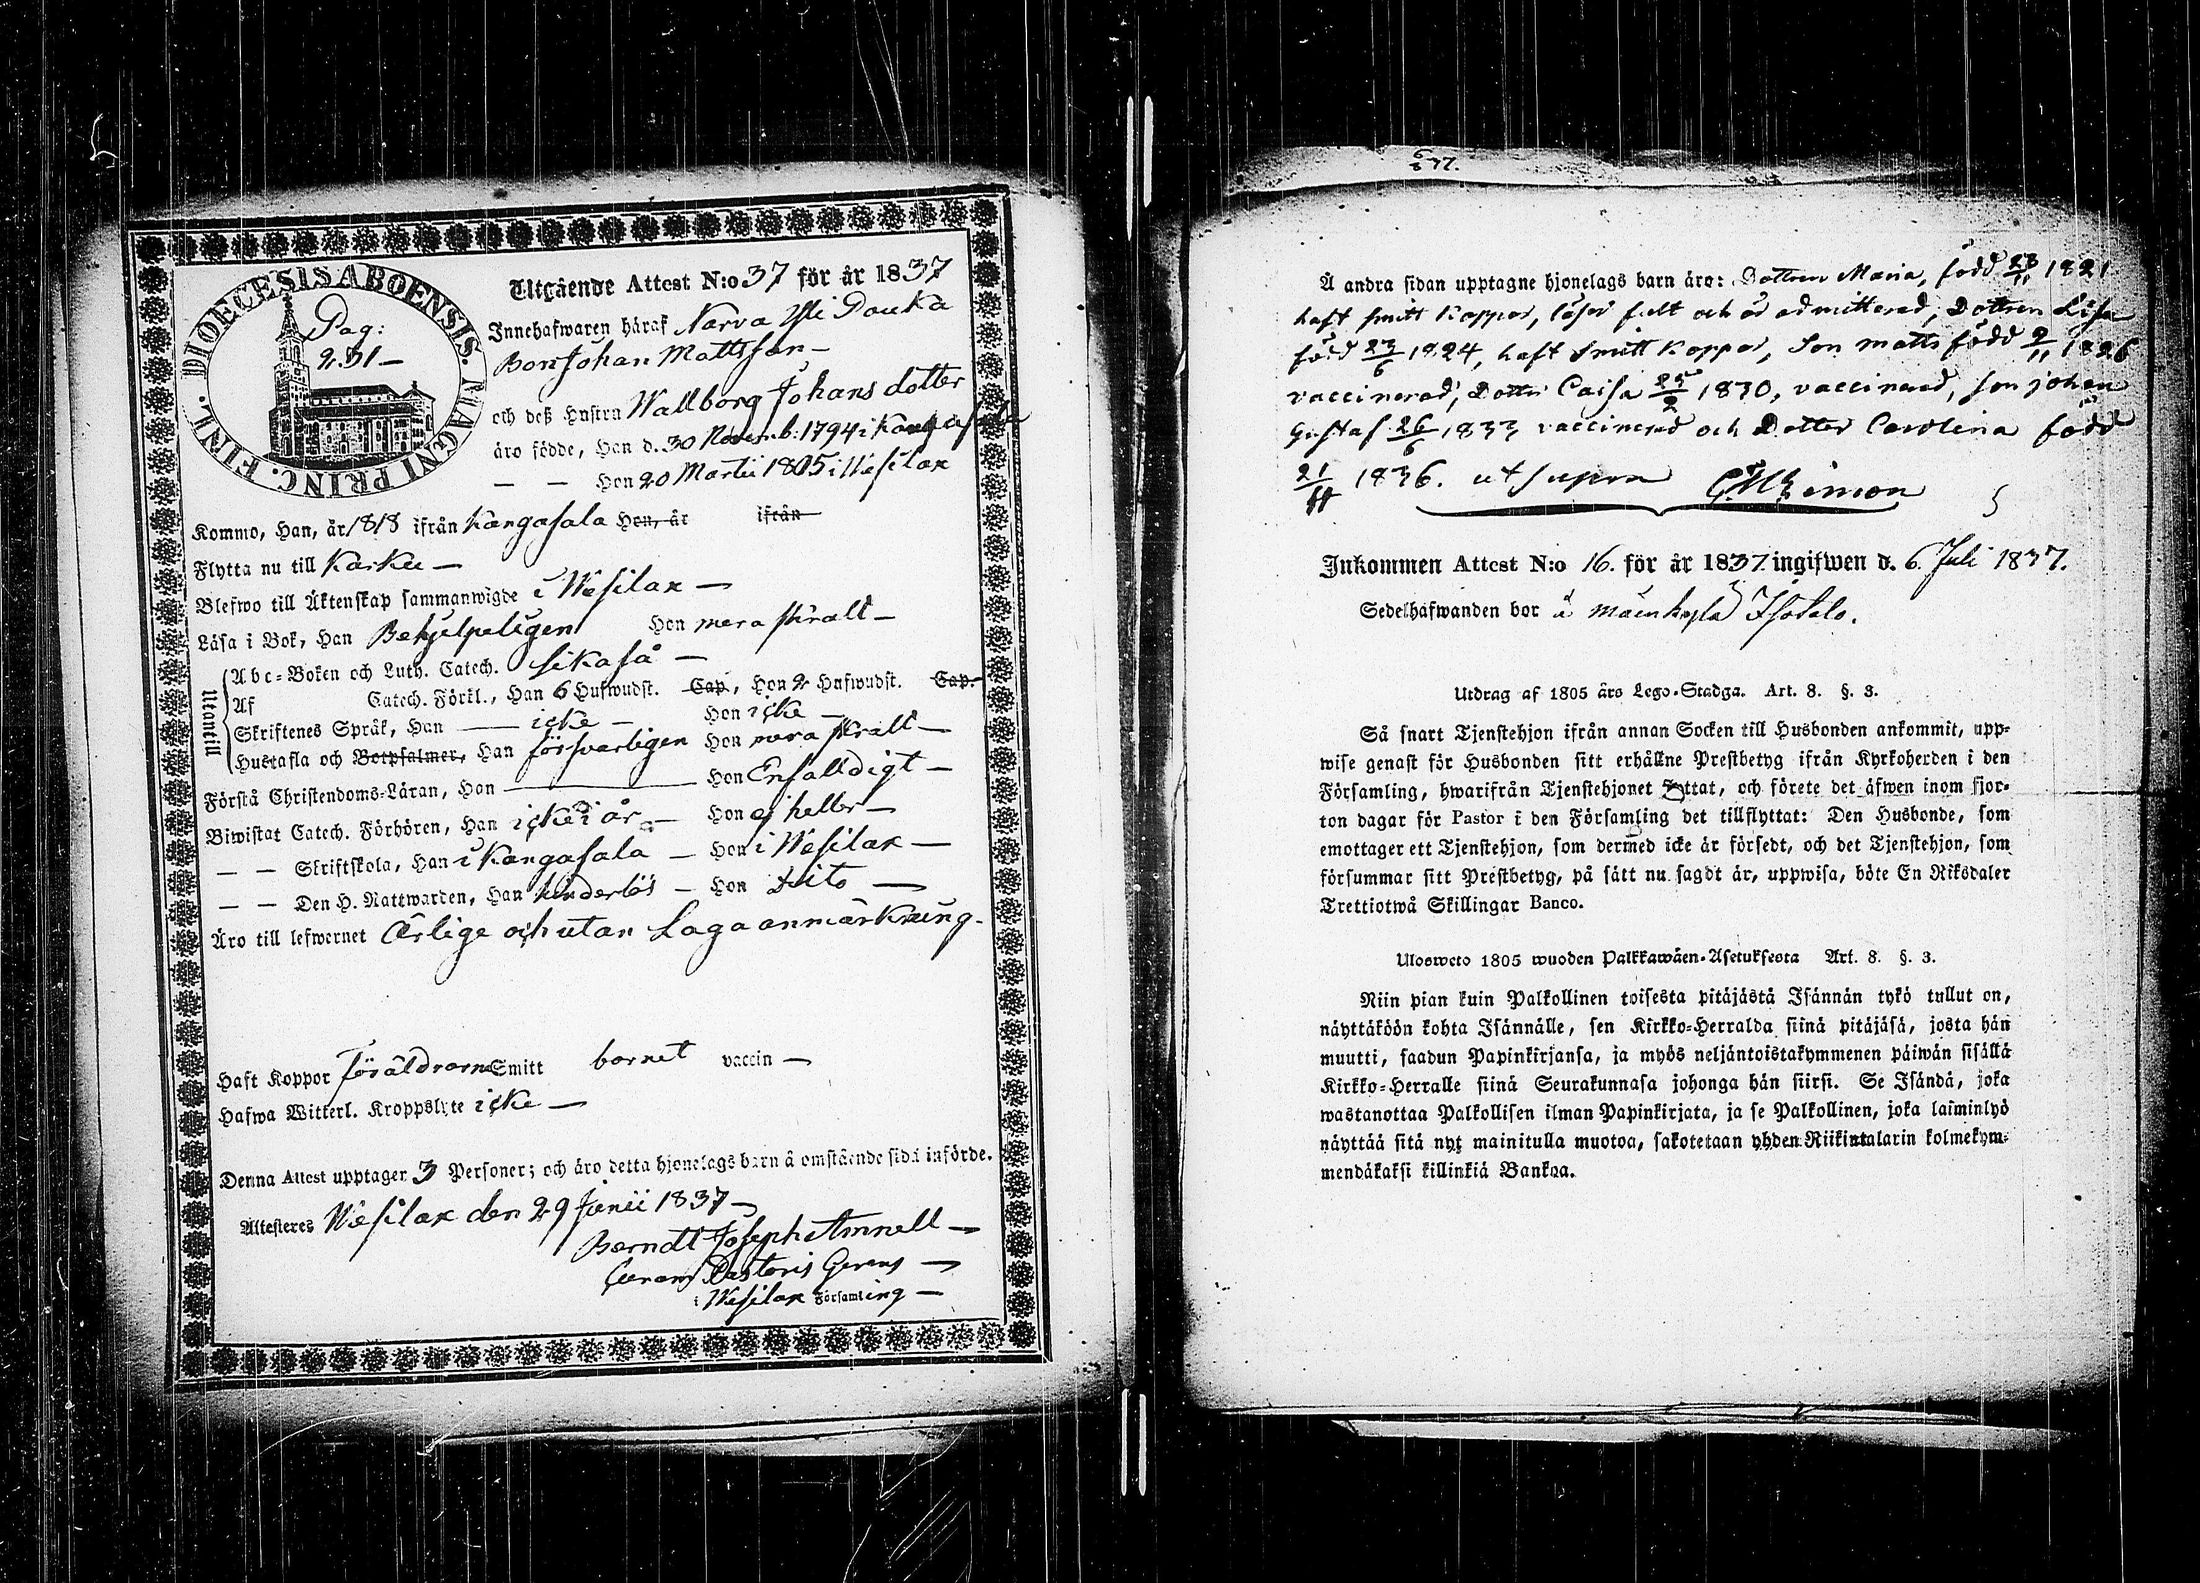 DIOECESIS ABOENSIS. MAGNI PRINC. FINL.
Pag:
231 —
Utgående Attest N:o 37 för år 1837
Innehafwaren häraf Narva Yli Pouka
Bon Johan Mattsson —
och deß Hustru Wallborg Johans dotter
äro födde, Han d. 30 Novemb: 1794 i Kangasala
— — Hon 20 Martii 1805 i Wesilax
Kommo, Han, år 1818 ifrån Kangasala Hon, år ifrån
Flytta nu till Karku —
Blefwo till Äktenskap sammanwigde i Wesilax —
Läsa i Bok, Han Behjelpeligen Hon mera svralt —
Utantill
Abc-Boken och Luth. Catech. lika så —
Af Catech. Förkl., Han 6 Hufwudst. Cap., Hon 2 Hufwudst. Cap.
Skriftenes Språk, Han — icke — Hon icke —
Hustafla och Botpsalmer, Han försvarligen Hon mera svralt —
Förstå Christendoms-Läran, Han — Hon Enfalldigt —
Biwistat Catech. Förhören, Han icke i år — Hon ej heller —
— — Skriftskola, Han i Kangasala — Hon i Wesilax —
— — Den H. Nattwarden, Han hinderlös — Hon Dito —
Äro till lefwernet Ärlige och utan Laga anmärkning.
Haft Koppor Föräldrarne Smitt barnet vaccin —
Hafwa Witterl. Kroppslyte icke —
Denna Attest upptager 3 Personer; och äro detta hjonelags barn å omstående sida införde.
Attesteres Wesilax den 29 Junii 1837 —
Berndt Joseph Amnell —
Curam Pastoris Gerens —
i Wesilax Församling —
6/8 37.
Å andra sidan upptagne hjonelags barn äro: Dottren Maria, född 28/11 1821
haft smitt koppor, läser fult och är admitterad, Dottren Lisa
född 23/6 1824, haft smitt koppor, Son Matts född 9/11 1826
vaccinerad, Dotter Caisa 25/2 1830, vaccinerad, son Johan
Gustaf 26/6 1833 vaccinerad och Dotter Carolina född
21/11 1836. ut supra
Inkommen Attest N:o 16. för år 1837 ingifwen d. 6. Juli 1837.
Sedelhafwanden bor å Mäenkylä Isotalo.
Utdrag af 1805 års Lego-Stadga. Art. 8. §. 3.
Så snart Tjenstehjon ifrån annan Socken till Husbonden ankommit, upp-
wise genast för Husbonden sitt erhållne Prestbetyg ifrån Kyrkoherden i den
Församling, hwarifrån Tjenstehjonet flyttat, och förete det äfwen inom fjor-
ton dagar för Pastor i den Församling det tillflyttat: Den Husbonde, som
emottager ett Tjenstehjon, som dermed icke är försedt, och det Tjenstehjon, som
försummar sitt Prestbetyg, på sätt nu sagdt är, uppwisa, böte En Riksdaler
Trettiotwå Skillingar Banco.
Ulosweto 1805 wuoden Palkkawäen-Asetuksesta Art. 8. §. 3.
Niin pian kuin Palkollinen toisesta pitäjästä Isännän tykö tullut on,
näyttäköön kohta Isännälle, sen Kirkko-Herralda siinä pitäjäsä, josta hän
muutti, saadun Papinkirjansa, ja myös neljäntoistakymmenen päiwän sisällä
Kirkko-Herralle siinä Seurakunnasa johonga hän siirsi. Se Isändä, joka
wastanottaa Palkollisen ilman Papinkirjata, ja se Palkollinen, joka laiminlyö
näyttää sitä nyt mainitulla muotoa, sakotetaan yhden Riikintalarin kolmekym-
mendäkaksi killinkiä Bankoa.